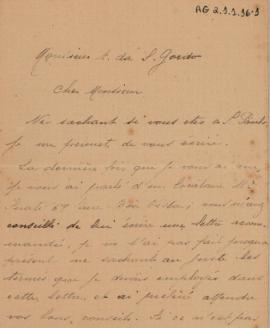 AG 2.1.1.36-1
Monsieur A. da S. Gordo
Cher Monsieur
Ne sachant si vous etes a St Paulo,
je me permet de vous écrire.
La dernière fois que je vous ai vu
je vous ai parlé d'un
vous m'avez
conseillé de lui écrire une lettre recom
mandée. Je ne l'ai pas fait jusqua
présent ne sachant au juste les
termes que je devais employés dans
cette lettre, et ai préféré attendre
vos bons conseils. Si ce n'est pas